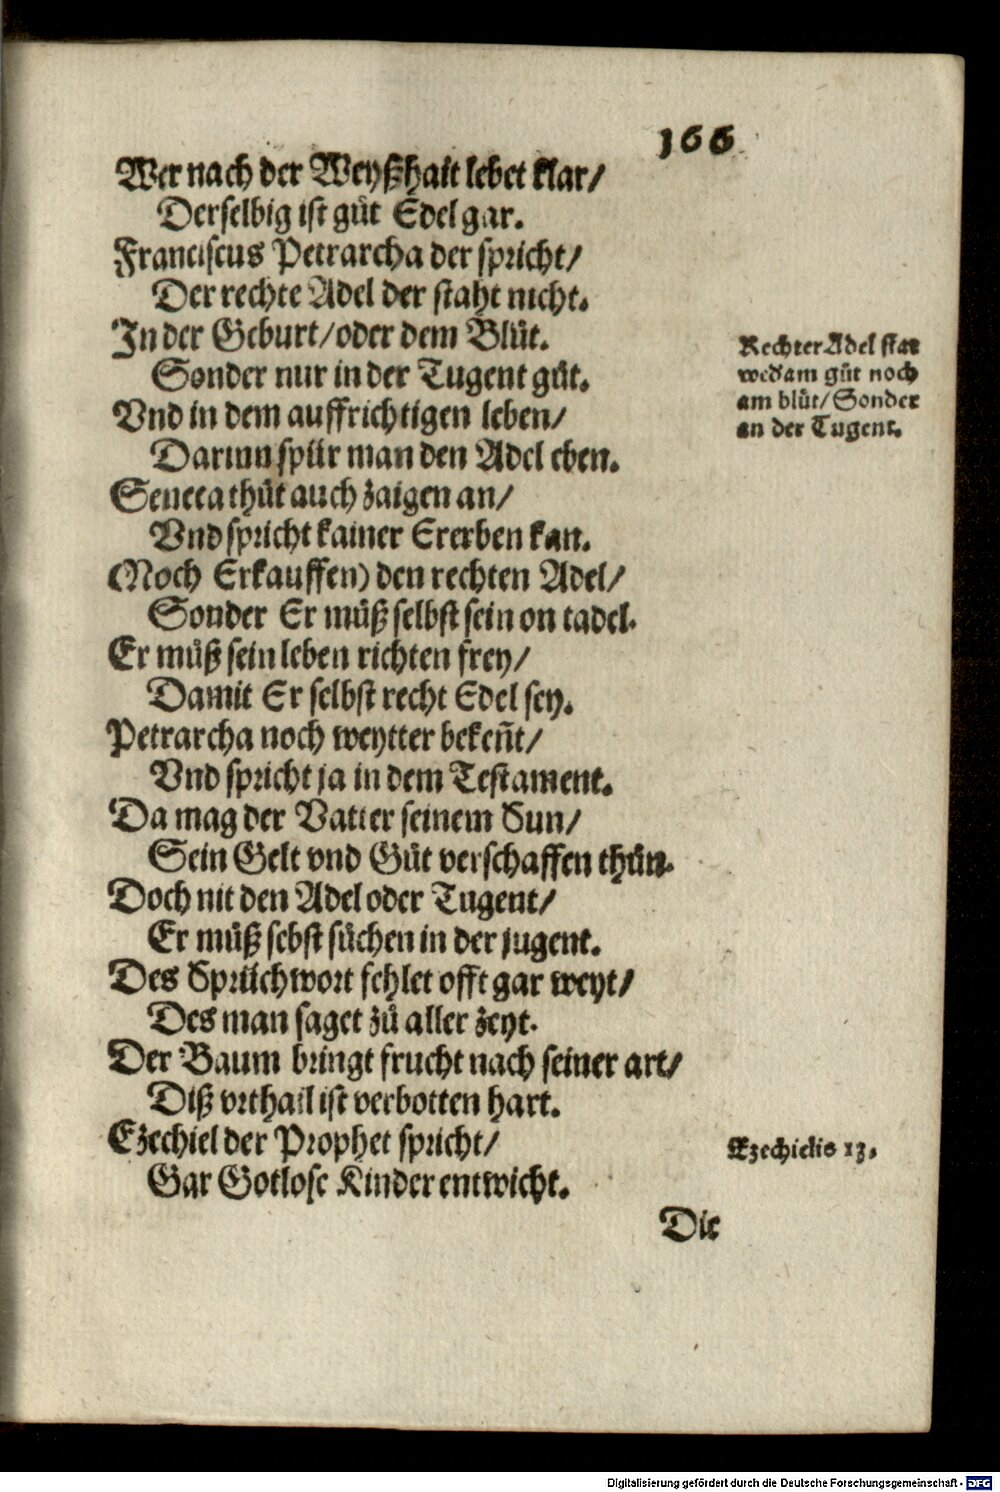 166
Wer nach der Weyßhait lebet klar/
Derselbig ist gůt Edel gar.
Franciscus Petrarcha der spricht/
Der rechte Adel der staht nicht.
In der Geburt/oder dem Blůt.
Sonder nur in der Tugent gůt.
Vnd in dem auffrichtigen leben/
Darinn spür man den Adel eben.
Seneca thůt auch zaigen an/
Vnd spricht kainer Ererben kan.
(Noch Erkauffen) den rechten Adel/
Sonder Er můß selbst sein on tadel.
Er můß sein leben richten frey/
Damit Er selbst recht Edel sey.
Petrarcha noch weytter bekeñt/
Vnd spricht ja in dem Testament.
Da mag der Vatter seinem Sun/
Sein Gelt vnd Gůt verschaffen thůn.
Doch nit den Adel oder Tugent/
Er můß sebst sůchen in der jugent.
Des Sprüchwort fehlet offt gar weyt/
Des man saget zů aller zeyt.
Der Baum bringt frucht nach seiner art/
Diß vrthail ist verbotten hart.
Ezechiel der Prophet spricht/
Gar Gotlose Kinder entwicht.
Die
Rechter Adel stat
wed am gůt noch
am blůt/Sonder
an der Tugent.
Ezechielis 13.
Digitalisierung gefördert durch die Deutsche Forschungsgemeinschaft - DFG